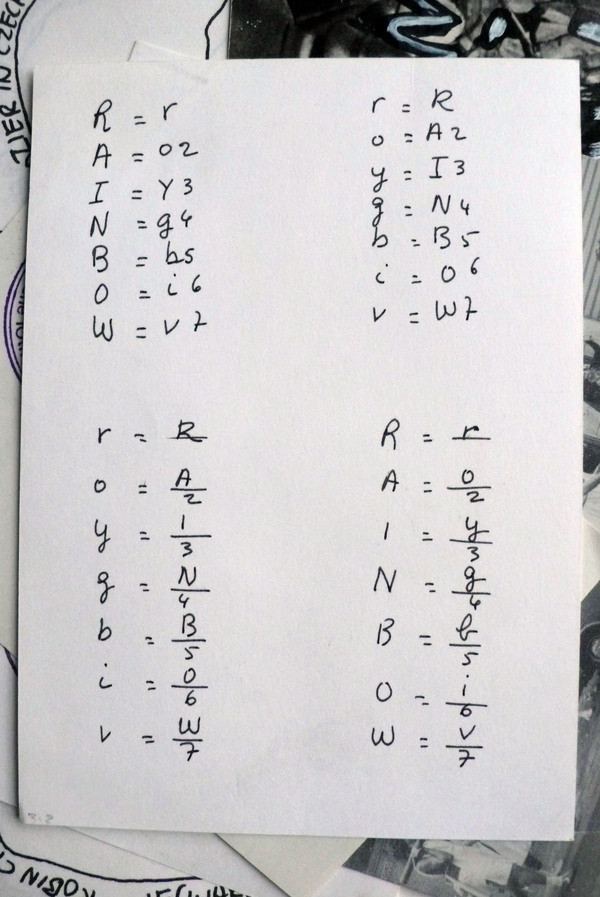 R = r
A = o2
I = Y3
N = g4
B = b5
O = i6
W = v7
r = R
o = A2
y = I3
g = N4
b = B5
i = O6
v = W7
r = R
o = A/2
y = 1/3
g = N/4
b = B/5
i = O/6
v = W/7
R = r
A = O/2
I = y/3
N = g/4
B = b/5
O = i/6
W = v/7
IER IN CZECH
ROBIN C